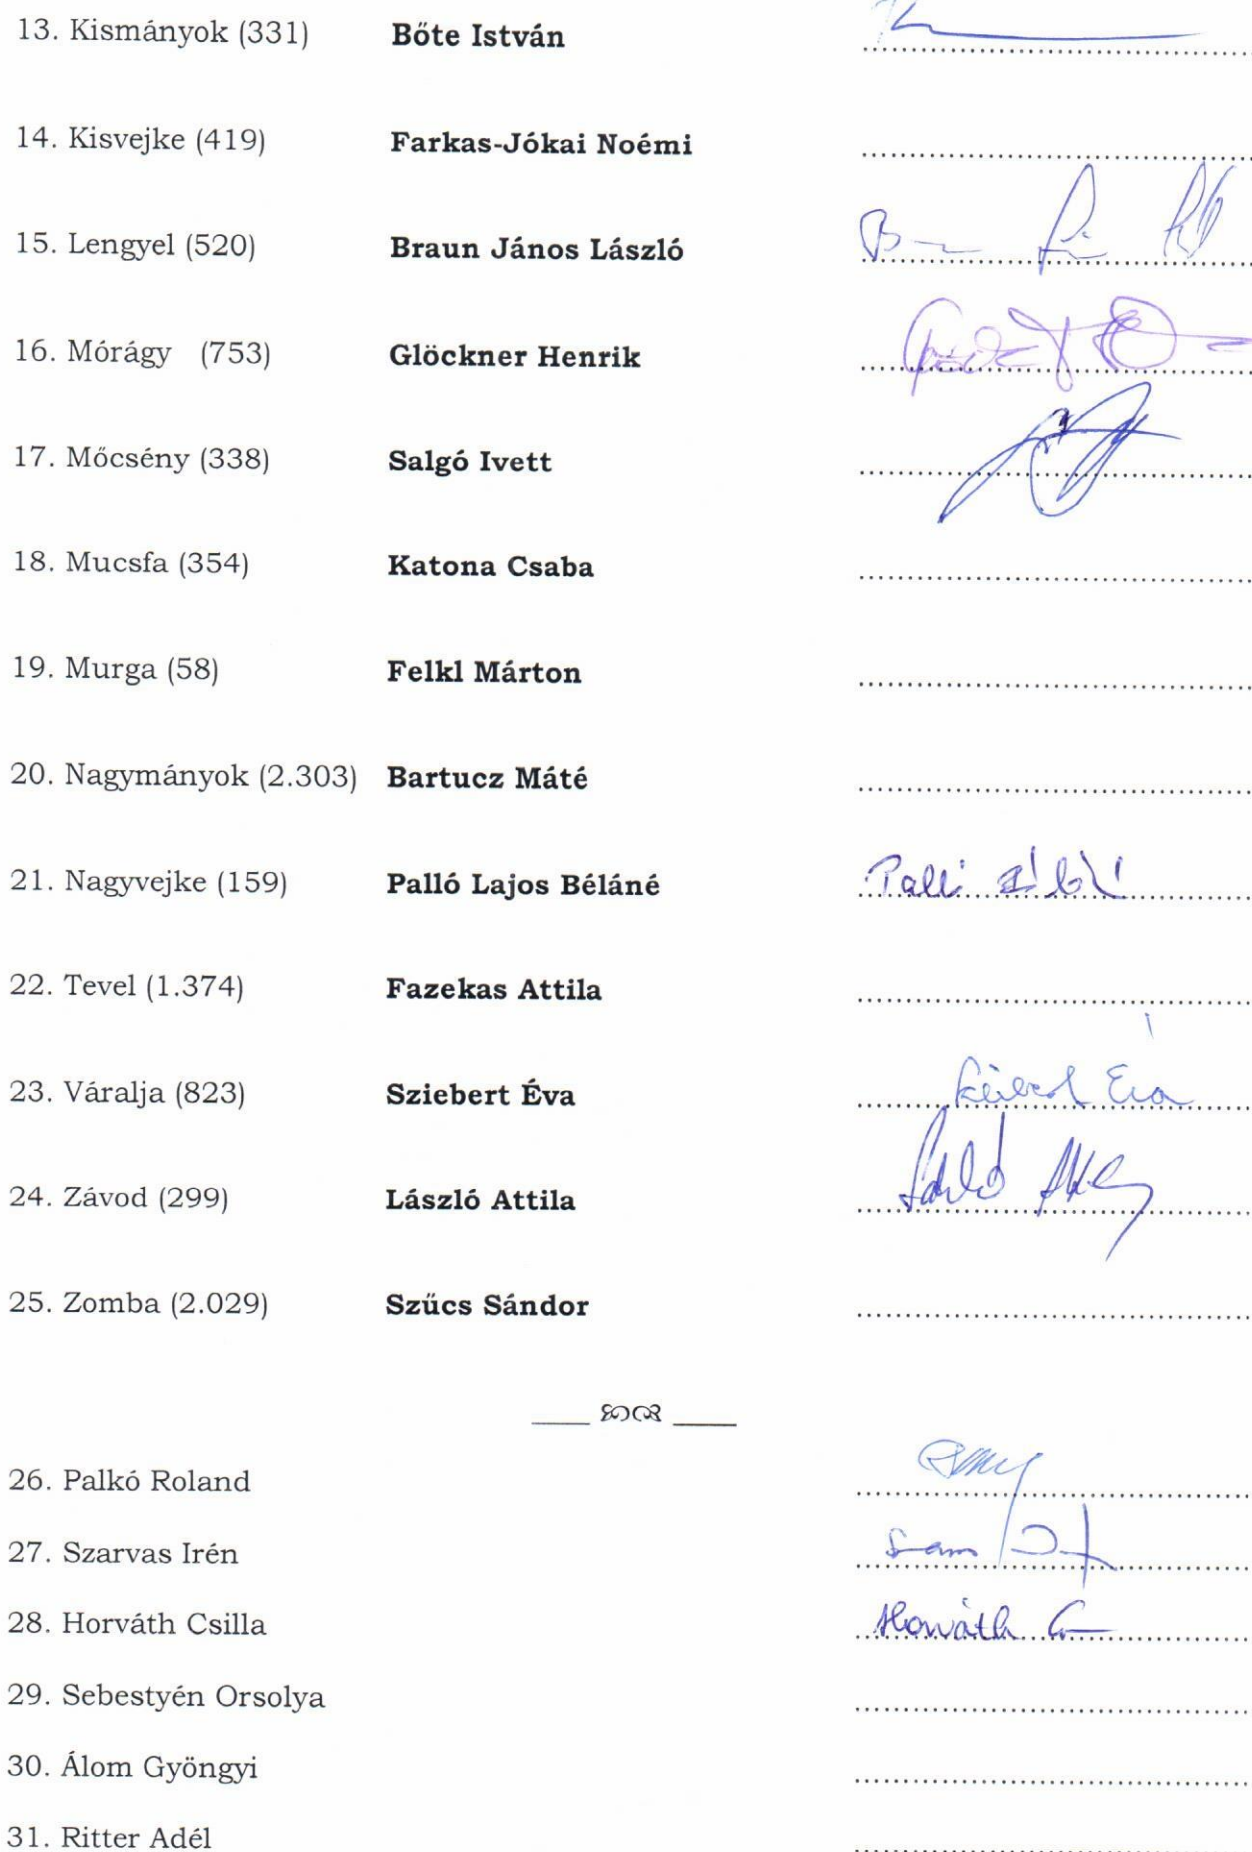 13. Kismányok (331) Bőte István
14. Kisvejke (419) Farkas-Jókai Noémi
15. Lengyel (520) Braun János László
16. Mórágy (753) Glöckner Henrik
17. Mőcsény (338) Salgó Ivett
18. Mucsfa (354) Katona Csaba
19. Murga (58) Felkl Márton
20. Nagymányok (2.303) Bartucz Máté
21. Nagyvejke (159) Palló Lajos Béláné
22. Tevel (1.374) Fazekas Attila
23. Váralja (823) Sziebert Éva Éva
24. Závod (299) László Attila
25. Zomba (2.029) Szűcs Sándor
26. Palkó Roland
27. Szarvas Irén
28. Horváth Csilla Horváth
29. Sebestyén Orsolya
30. Álom Gyöngyi
31. Ritter Adél